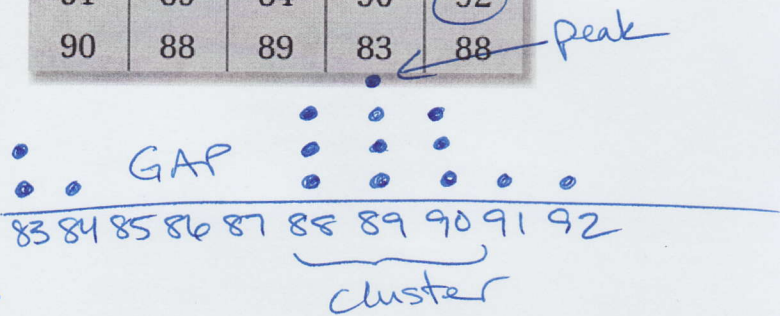 92
90 88 89 83 88
peak
GAP
83 84 85 86 87 88 89 90 91 92
cluster